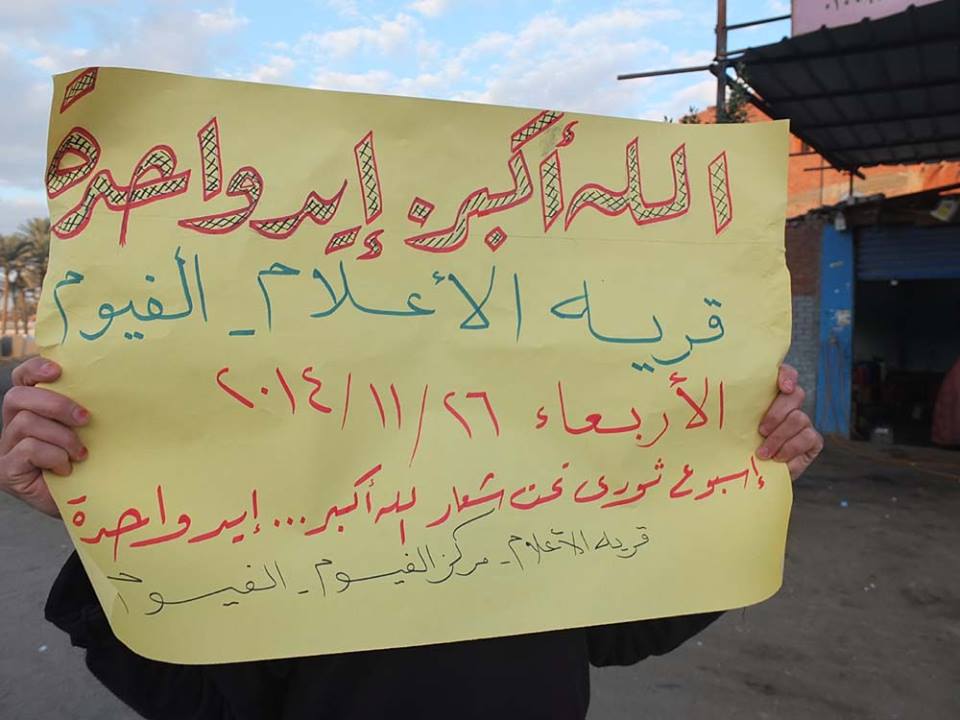 الله أكبر. إيد واحدة
قريه الأعلام - الفيوم
الأربعاء ٢٦/١١/٢٠١٤
إسبوع ثورى تحت شعار الله أكبر... إيد واحدة
قريه الأعلام - مركز الفيوم - الفيوم